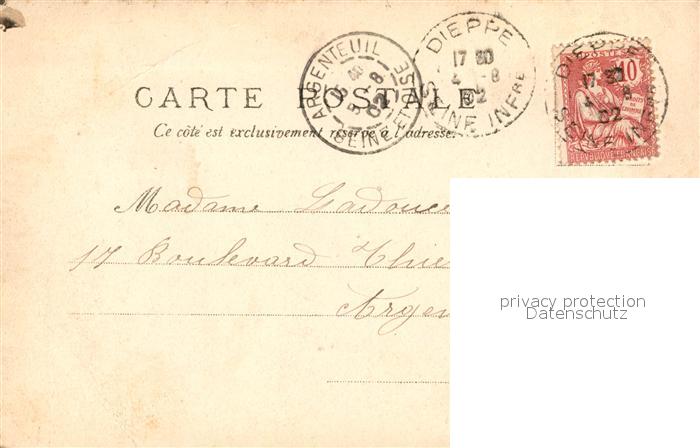 ARGENTEUIL
5 -8
02
SEINE ET OISE
DIEPPE
17 30
4 -8
02
SEINE INFRE
DIEPPE
17 30
02
SEINE INFRE
POSTES
10
REPUBLIQUE FRANÇAISE
CARTE POSTALE
Ce côté est exclusivement réservé à l'adresse.
Madame Ladouce
17 Boulevard Thie
Argen
privacy protection
Datenschutz